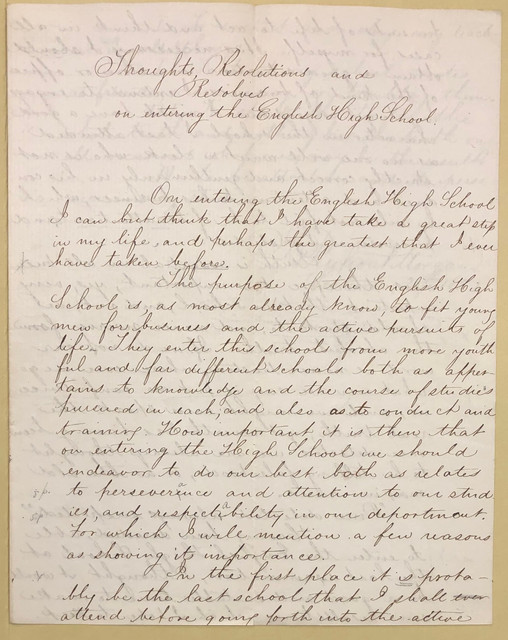 Thoughts, Resolutions and
Resolves
on entering the English High School.
On entering the English High School
I can but think that I have take a great step
in my life, and perhaps the greatest that I ever
have taken before.
The purpose of the English High
School is, as most already know, to fit young
men for business and the active pursuits of
life. They enter this schools from more youth
ful and far different schools both as apper-
tains to knowledge and the course of studies
pursued in each, and also as to conduct and
training How important it is then that
on entering the High School we should
endeavor to do our best both as relates
sp. to perseverence a and attention to our stud
sp. ies, and respectibility a in our deportment.
For which I will mention a few reasons
as showing its importance.
In the first place it is proba-
bly be the last school that I shall ever
attend before going forth into the active